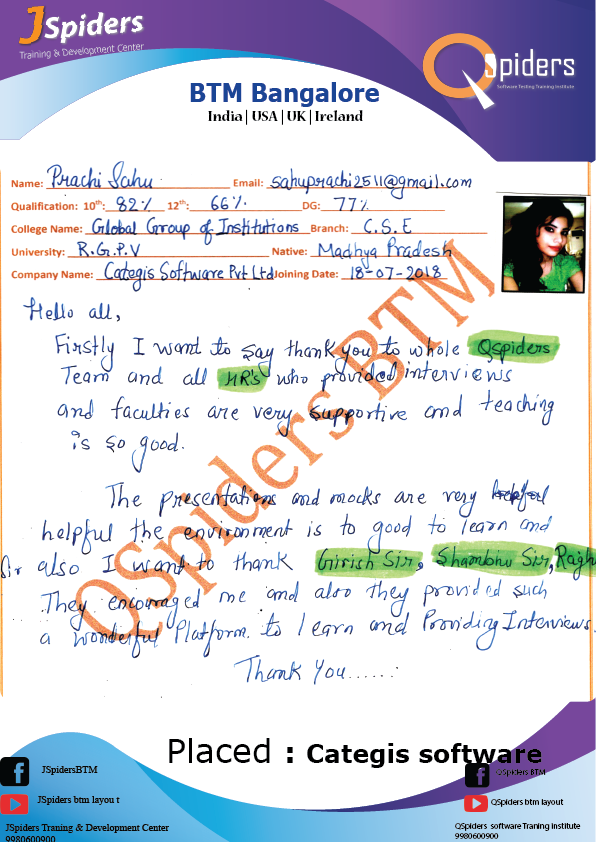 JSpiders
Training & Development Center
QSpiders
Software Testing Training Institute
BTM Bangalore
India | USA | UK | Ireland
Name: Prachi Sahu Email: sahuprachi2511@gmail.com
Qualification: 10th: 82% 12th: 66% DG: 77%
College Name: Global Group of Institutions Branch: C.S.E
University: R.G.P.V Native: Madhya Pradesh
Company Name: Categis Software Pvt Ltd Joining Date: 18-07-2018
Hello all,
Firstly I want to say thank you to whole Qspiders
Team and all HR's who provided interviews
and faculties are very supportive and teaching
is so good.
The presentations and mocks are very
helpful the environment is to good to learn and
Sir also I want to thank Girish Sir, Shambhu Sir, Ragh
They encouraged me and also they provided such
a wonderful Platform to learn and Providing Interviews.
Thank You......
QSpiders BTM
Placed : Categis software
JSpidersBTM
JSpiders btm layou t
JSpiders Traning & Development Center
9980600900
QSpiders BTM
QSpiders btm layout
QSpiders software Traning institute
9980600900